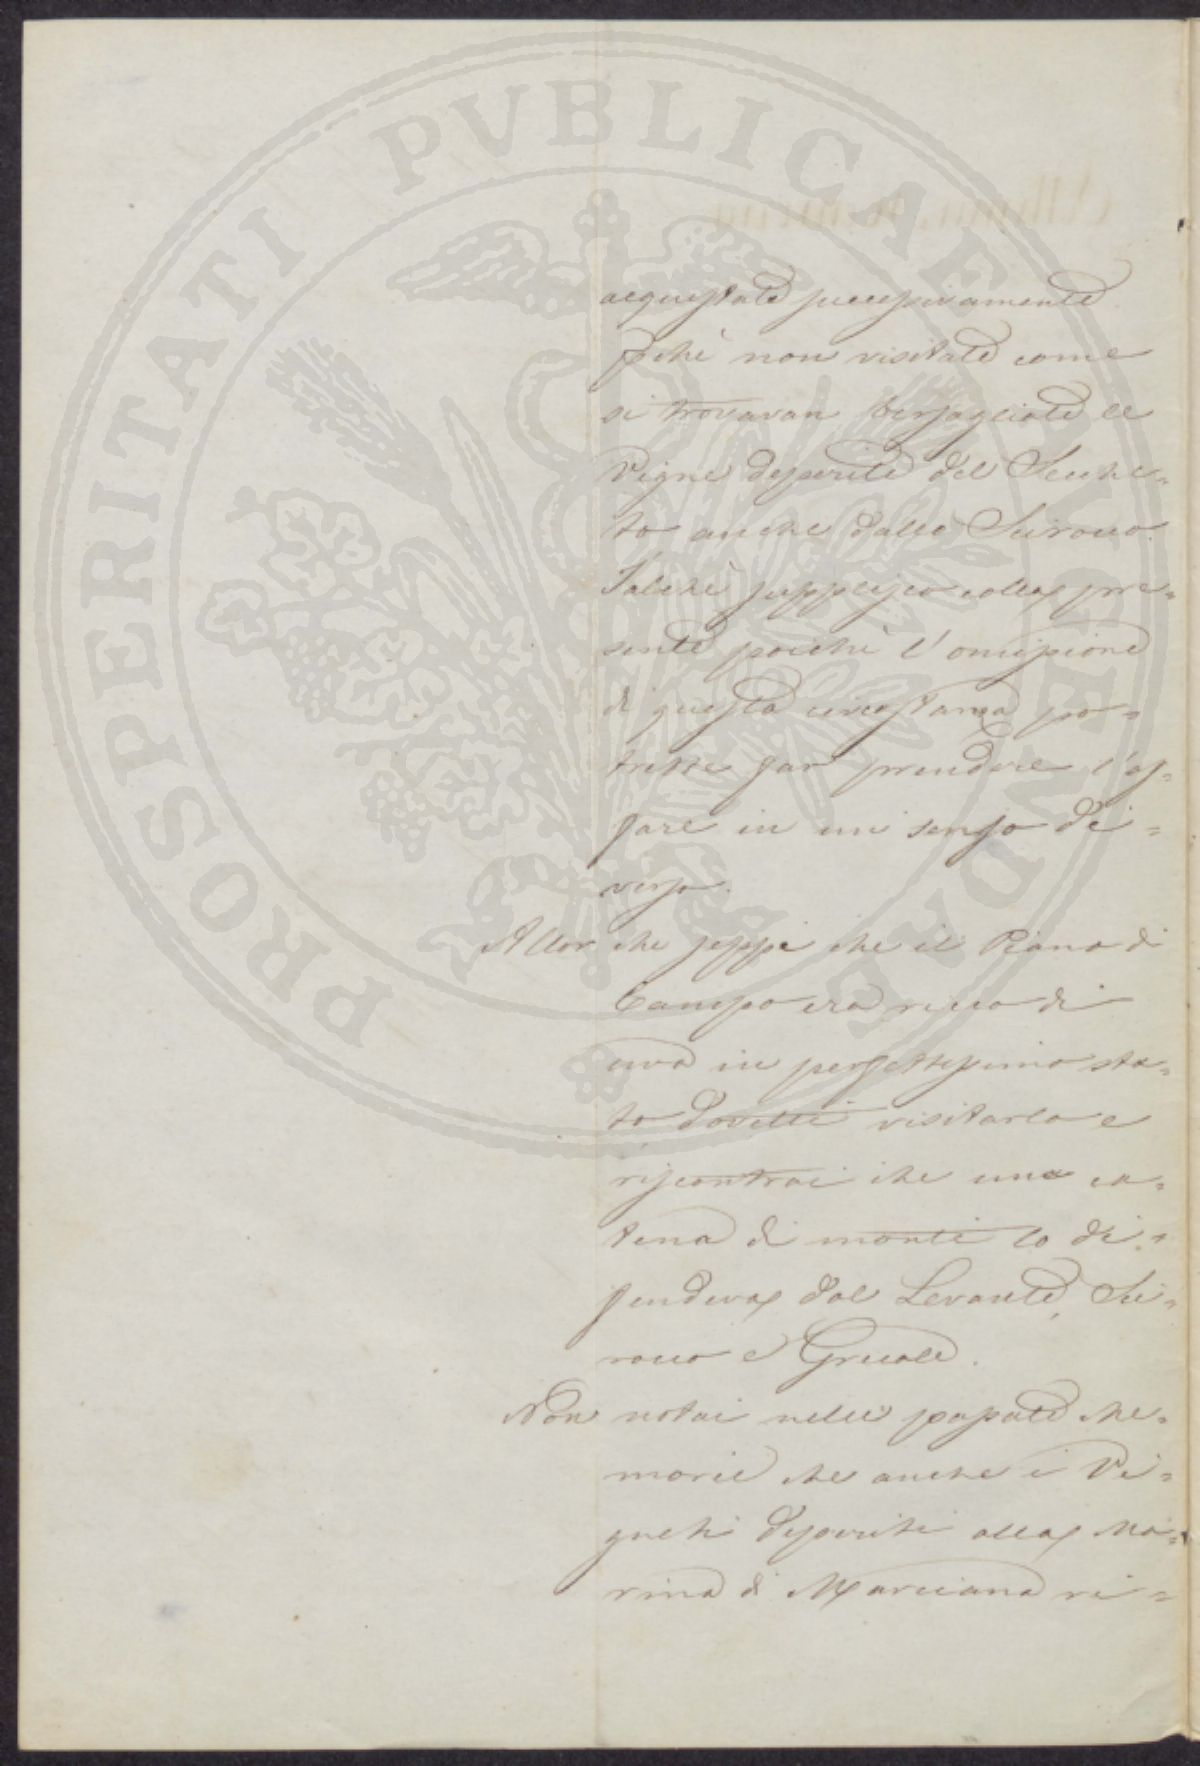 PROSPERITATI PVBLICAE AVGENDAE
acquistate successivamente
pchè non visitate come
si trovavan bersagliate le
Vigne deperite del Secche=
to anche dallo Scirocco.
Talchè supplisco colla pre=
sente poichè l'omissione
di questa circostanza po=
trebbe far prendere l'af=
fare in un senso di=
verso.
Allor che seppi che il Piano di
Campo era ricco di
uva in perfettissimo sta=
to dovetti visitarlo e
riscontrai che una ca=
tena di monti lo di=
fendeva dal Levante, Sci=
rocco e Grecale.
Non notai nelle passate Me=
morie che anche i Vi=
gneti deperiti alla Ma=
rina di Marciana ri=